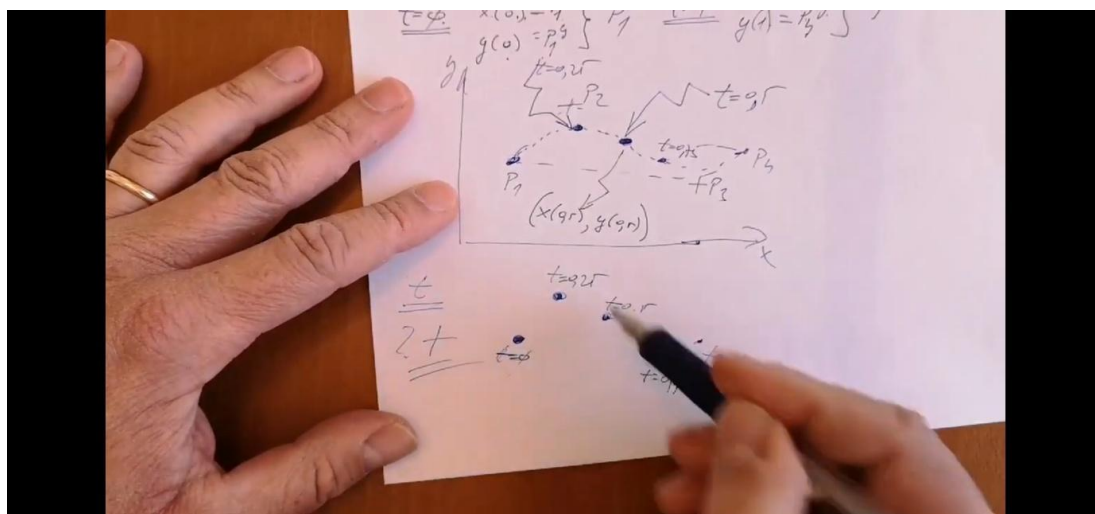 t=φ. x(0)
y(0) = P₁ʸ } P₁
y(1) = P₄ʸ }
y
t=0,25
P2
t=0,5
t=0,75
P4
P1
+P3
(x(0,5), y(0,5))
x
t
t=0,25
t=0,5
? t
t=φ